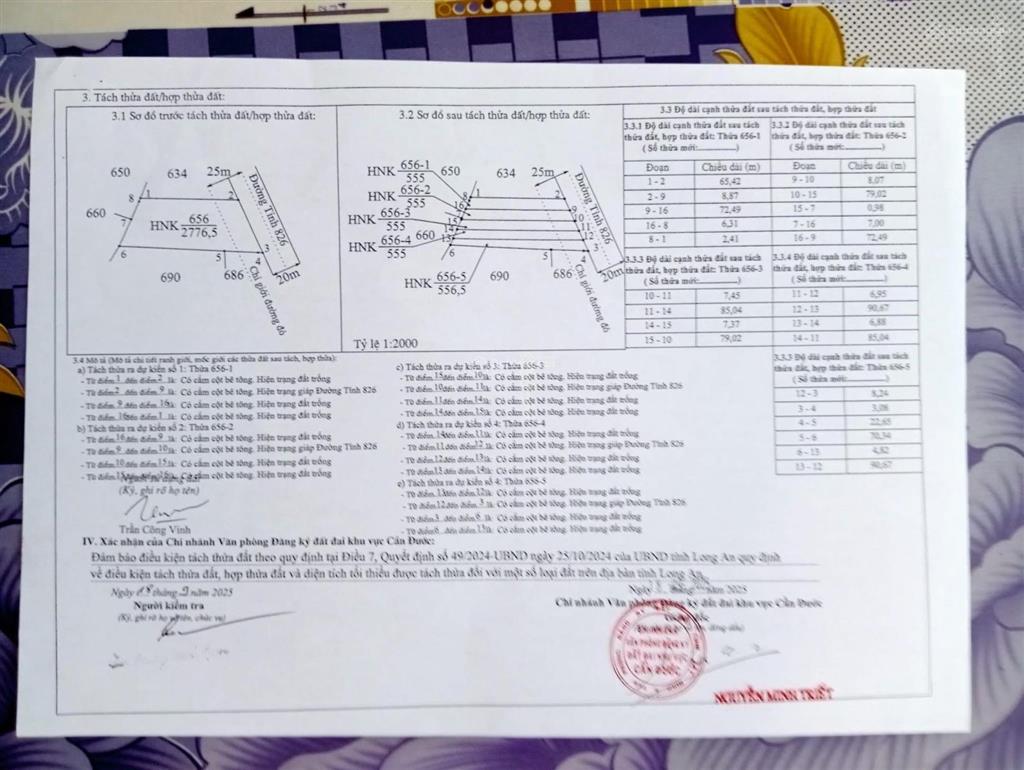 3. Tách thửa đất/hợp thửa đất:
3.1 Sơ đồ trước tách thửa đất/hợp thửa đất:
650
634
25m
8
1
2
Đường Tỉnh 826
660
7
HNK 656/2776,5
6
5
4
3
20m
690
686
Chỉ giới đường đỏ
3.2 Sơ đồ sau tách thửa đất/hợp thửa đất:
HNK 656-1/555
650
634
25m
HNK 656-2/555
8
1
2
Đường Tỉnh 826
16
9
HNK 656-3/555
15
10
11
HNK 656-4/555
660
14
13
12
6
5
4
3
20m
HNK 656-5/556,5
690
686
Chỉ giới đường đỏ
Tỷ lệ 1:2000
3.3 Độ dài cạnh thửa đất sau tách thửa đất, hợp thửa đất
3.3.1 Độ dài cạnh thửa đất sau tách thửa đất, hợp thửa đất: Thửa 656-1
( Số thửa mới:..............)
Đoạn Chiều dài (m)
1 - 2 65,42
2 - 9 8,87
9 - 16 72,49
16 - 8 6,31
8 - 1 2,41
3.3.2 Độ dài cạnh thửa đất sau tách thửa đất, hợp thửa đất: Thửa 656-2
( Số thửa mới:..............)
Đoạn Chiều dài (m)
9 - 10 8,07
10 - 15 79,02
15 - 7 0,98
7 - 16 7,00
16 - 9 72,49
3.3.3 Độ dài cạnh thửa đất sau tách thửa đất, hợp thửa đất: Thửa 656-3
( Số thửa mới:..............)
10 - 11 7,45
11 - 14 85,04
14 - 15 7,37
15 - 10 79,02
3.3.4 Độ dài cạnh thửa đất sau tách thửa đất, hợp thửa đất: Thửa 656-4
( Số thửa mới:..............)
11 - 12 6,95
12 - 13 90,67
13 - 14 6,88
14 - 11 85,04
3.3.5 Độ dài cạnh thửa đất sau tách thửa đất, hợp thửa đất: Thửa 656-5
( Số thửa mới:..............)
12 - 3 8,24
3 - 4 3,08
4 - 5 22,65
5 - 6 70,34
6 - 13 4,82
13 - 12 90,67
3.4 Mô tả (Mô tả chi tiết ranh giới, mốc giới các thửa đất sau tách, hợp thửa):
a) Tách thửa ra dự kiến số 1: Thửa 656-1
- Từ điểm 1 đến điểm 2 là: Có cắm cột bê tông. Hiện trạng đất trống
- Từ điểm 2 đến điểm 9 là: Có cắm cột bê tông. Hiện trạng giáp Đường Tỉnh 826
- Từ điểm 9 đến điểm 16 là: Có cắm cột bê tông. Hiện trạng đất trống
- Từ điểm 16 đến điểm 1 là: Có cắm cột bê tông. Hiện trạng đất trống
b) Tách thửa ra dự kiến số 2: Thửa 656-2
- Từ điểm 16 đến điểm 9 là: Có cắm cột bê tông. Hiện trạng đất trống
- Từ điểm 9 đến điểm 10 là: Có cắm cột bê tông. Hiện trạng giáp Đường Tỉnh 826
- Từ điểm 10 đến điểm 15 là: Có cắm cột bê tông. Hiện trạng đất trống
- Từ điểm 15 đến điểm 16 là: Có cắm cột bê tông. Hiện trạng đất trống
(Ký, ghi rõ họ tên)
Trần Công Vinh
c) Tách thửa ra dự kiến số 3: Thửa 656-3
- Từ điểm 15 đến điểm 10 là: Có cắm cột bê tông. Hiện trạng đất trống
- Từ điểm 10 đến điểm 11 là: Có cắm cột bê tông. Hiện trạng giáp Đường Tỉnh 826
- Từ điểm 11 đến điểm 14 là: Có cắm cột bê tông. Hiện trạng đất trống
- Từ điểm 14 đến điểm 15 là: Có cắm cột bê tông. Hiện trạng đất trống
d) Tách thửa ra dự kiến số 4: Thửa 656-4
- Từ điểm 14 đến điểm 11 là: Có cắm cột bê tông. Hiện trạng đất trống
- Từ điểm 11 đến điểm 12 là: Có cắm cột bê tông. Hiện trạng giáp Đường Tỉnh 826
- Từ điểm 12 đến điểm 13 là: Có cắm cột bê tông. Hiện trạng đất trống
- Từ điểm 13 đến điểm 14 là: Có cắm cột bê tông. Hiện trạng đất trống
e) Tách thửa ra dự kiến số 4: Thửa 656-5
- Từ điểm 13 đến điểm 12 là: Có cắm cột bê tông. Hiện trạng đất trống
- Từ điểm 12 đến điểm 3 là: Có cắm cột bê tông. Hiện trạng giáp Đường Tỉnh 826
- Từ điểm 3 đến điểm 6 là: Có cắm cột bê tông. Hiện trạng đất trống
- Từ điểm 6 đến điểm 13 là: Có cắm cột bê tông. Hiện trạng đất trống
IV. Xác nhận của Chi nhánh Văn phòng Đăng ký đất đai khu vực Cần Đước:
Đảm bảo điều kiện tách thửa đất theo quy định tại Điều 7, Quyết định số 49/2024-UBND ngày 25/10/2024 của UBND tỉnh Long An quy định
về điều kiện tách thửa đất, hợp thửa đất và diện tích tối thiểu được tách thửa đối với một số loại đất trên địa bàn tỉnh Long An
tháng 9 năm 2025
Người kiểm tra
(Ký, ghi rõ họ tên, chức vụ)
năm 2025
Chi nhánh Văn phòng Đăng ký đất đai khu vực Cần Đước
CHI NHÁNH
VĂN PHÒNG ĐĂNG KÝ
ĐẤT ĐAI KHU VỰC
CẦN ĐƯỚC
NGUYỄN MINH TRIẾT